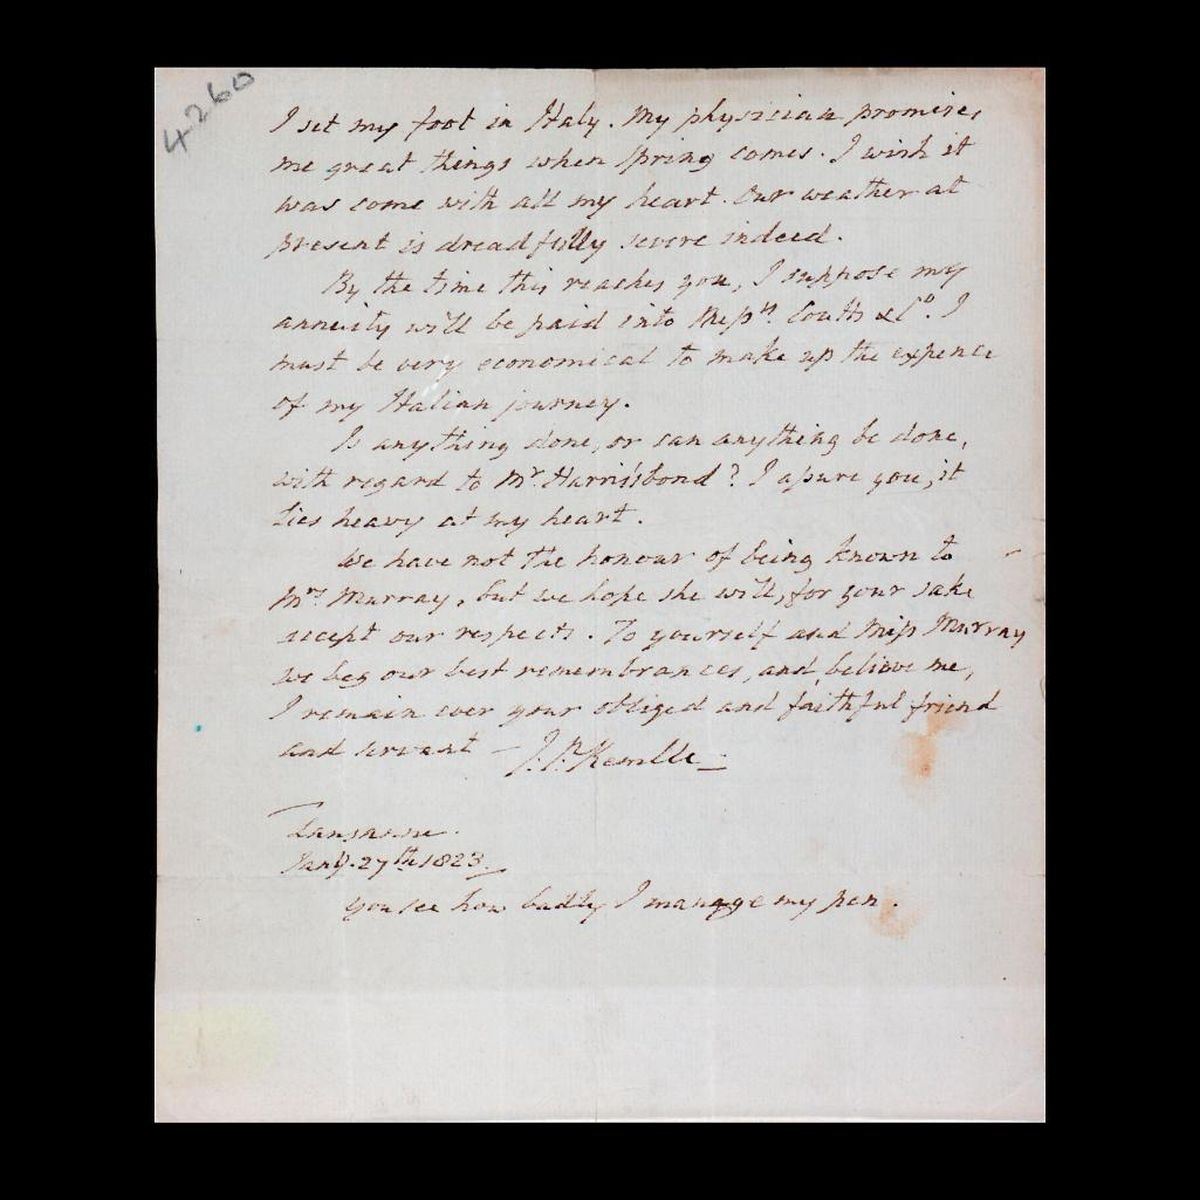 4260
I set my foot in Italy. My physician promises
me great things when spring comes. I wish it
was come with all my heart. Our weather at
present is dreadfully severe indeed.
By the time this reaches you, I suppose my
annuity will be paid into Messrs. Coutts & Co. I
must be very economical to make up the expence
of my Italian journey.
Is anything done, or can anything be done,
with regard to Mr. Harris's bond? I assure you, it
lies heavy at my heart.
We have not the honour of being known to
Mrs. Murray, but we hope she will, for your sake
accept our respects. To yourself and Miss Murray
we beg our best remembrances, and, believe me,
I remain ever your obliged and faithful friend
and servant – J. P. Kemble –
Lausanne.
Jany. 27th. 1823.
You see how badly I manage my pen.